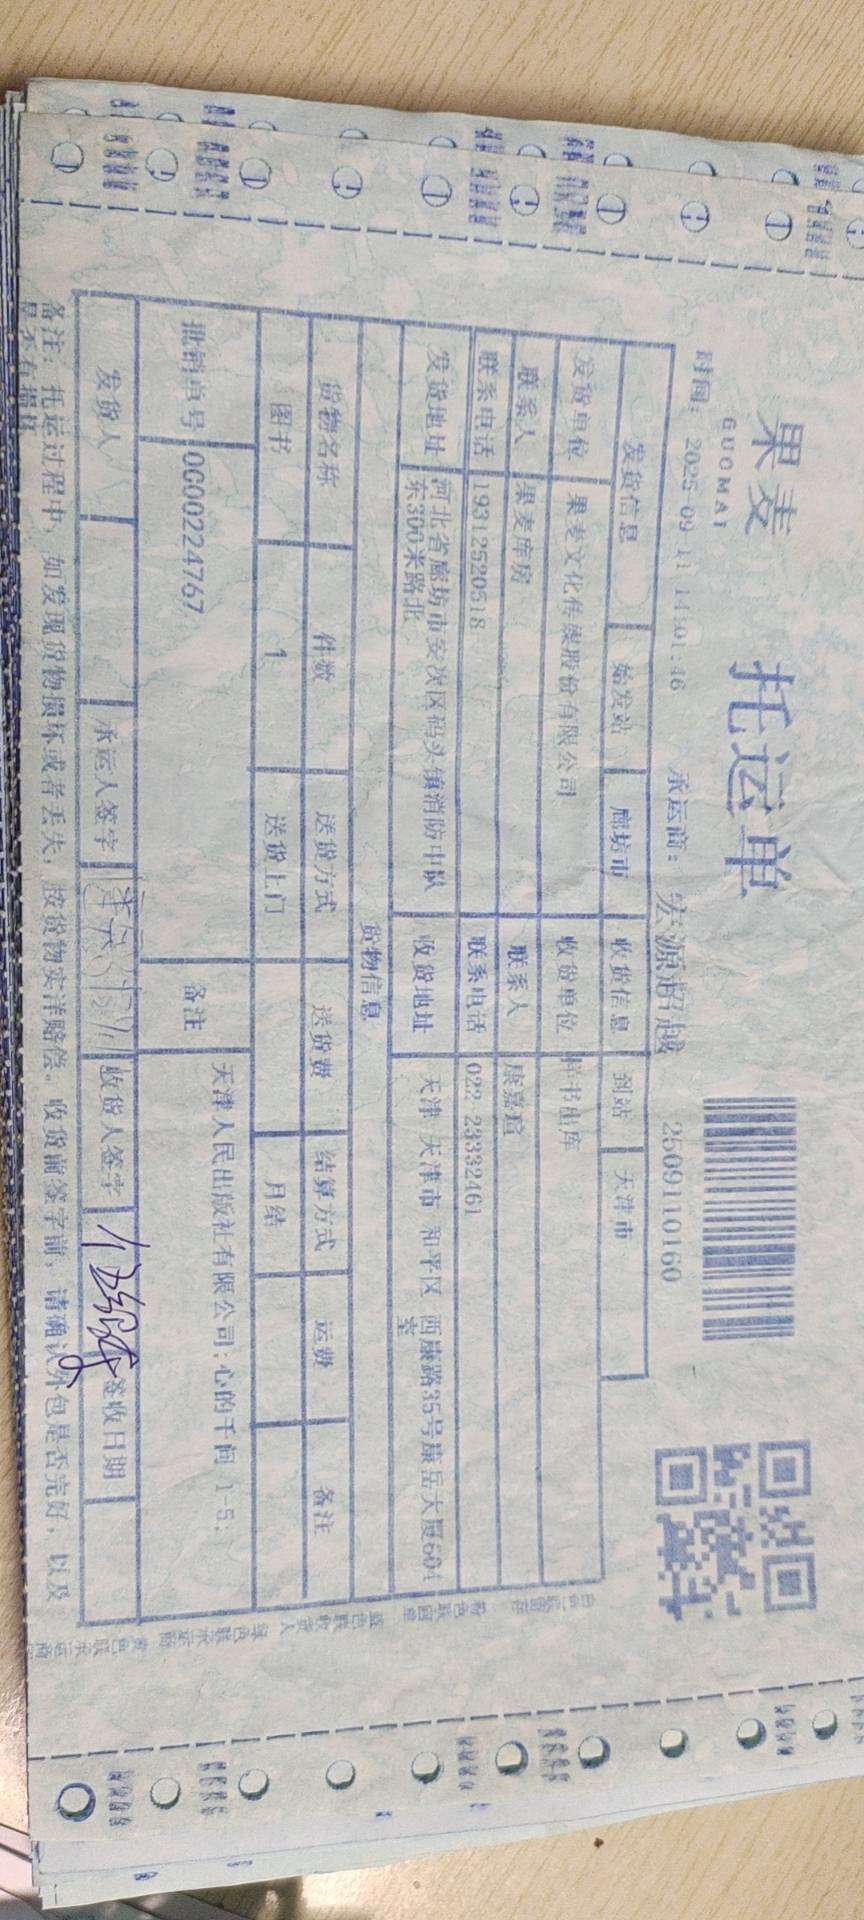 果麦
GUOMAI
托运单
时间: 2025-09-11 14:01:46 承运商: 宏源超越 2509110160
发货信息 始发站 廊坊市 收货信息 到站 天津市
发货单位 果麦文化传媒股份有限公司 收货单位 样书出库
联系人 果麦库房 联系人 康嘉瑄
联系电话 19312520518 联系电话 022-23332461
发货地址 河北省廊坊市安次区码头镇消防中队东300米路北 收货地址 天津 天津市 和平区 西康路35号康岳大厦604室
货物信息
货物名称 件数 送货方式 送货费 结算方式 运费 备注
图书 1 送货上门 月结
批销单号 0000224767 备注 天津人民出版社有限公司:心的千问 1-5;
发货人 承运人签字 收货人签字 签收日期
备注: 托运过程中, 如发现货物损坏或者丢失, 按货物实洋赔偿。收货前签字前, 请确认外包是否完好, 以及
是否有损坏
白色联留存 粉色联回单 蓝色联收货人 绿色联承运商 黄色联承运商